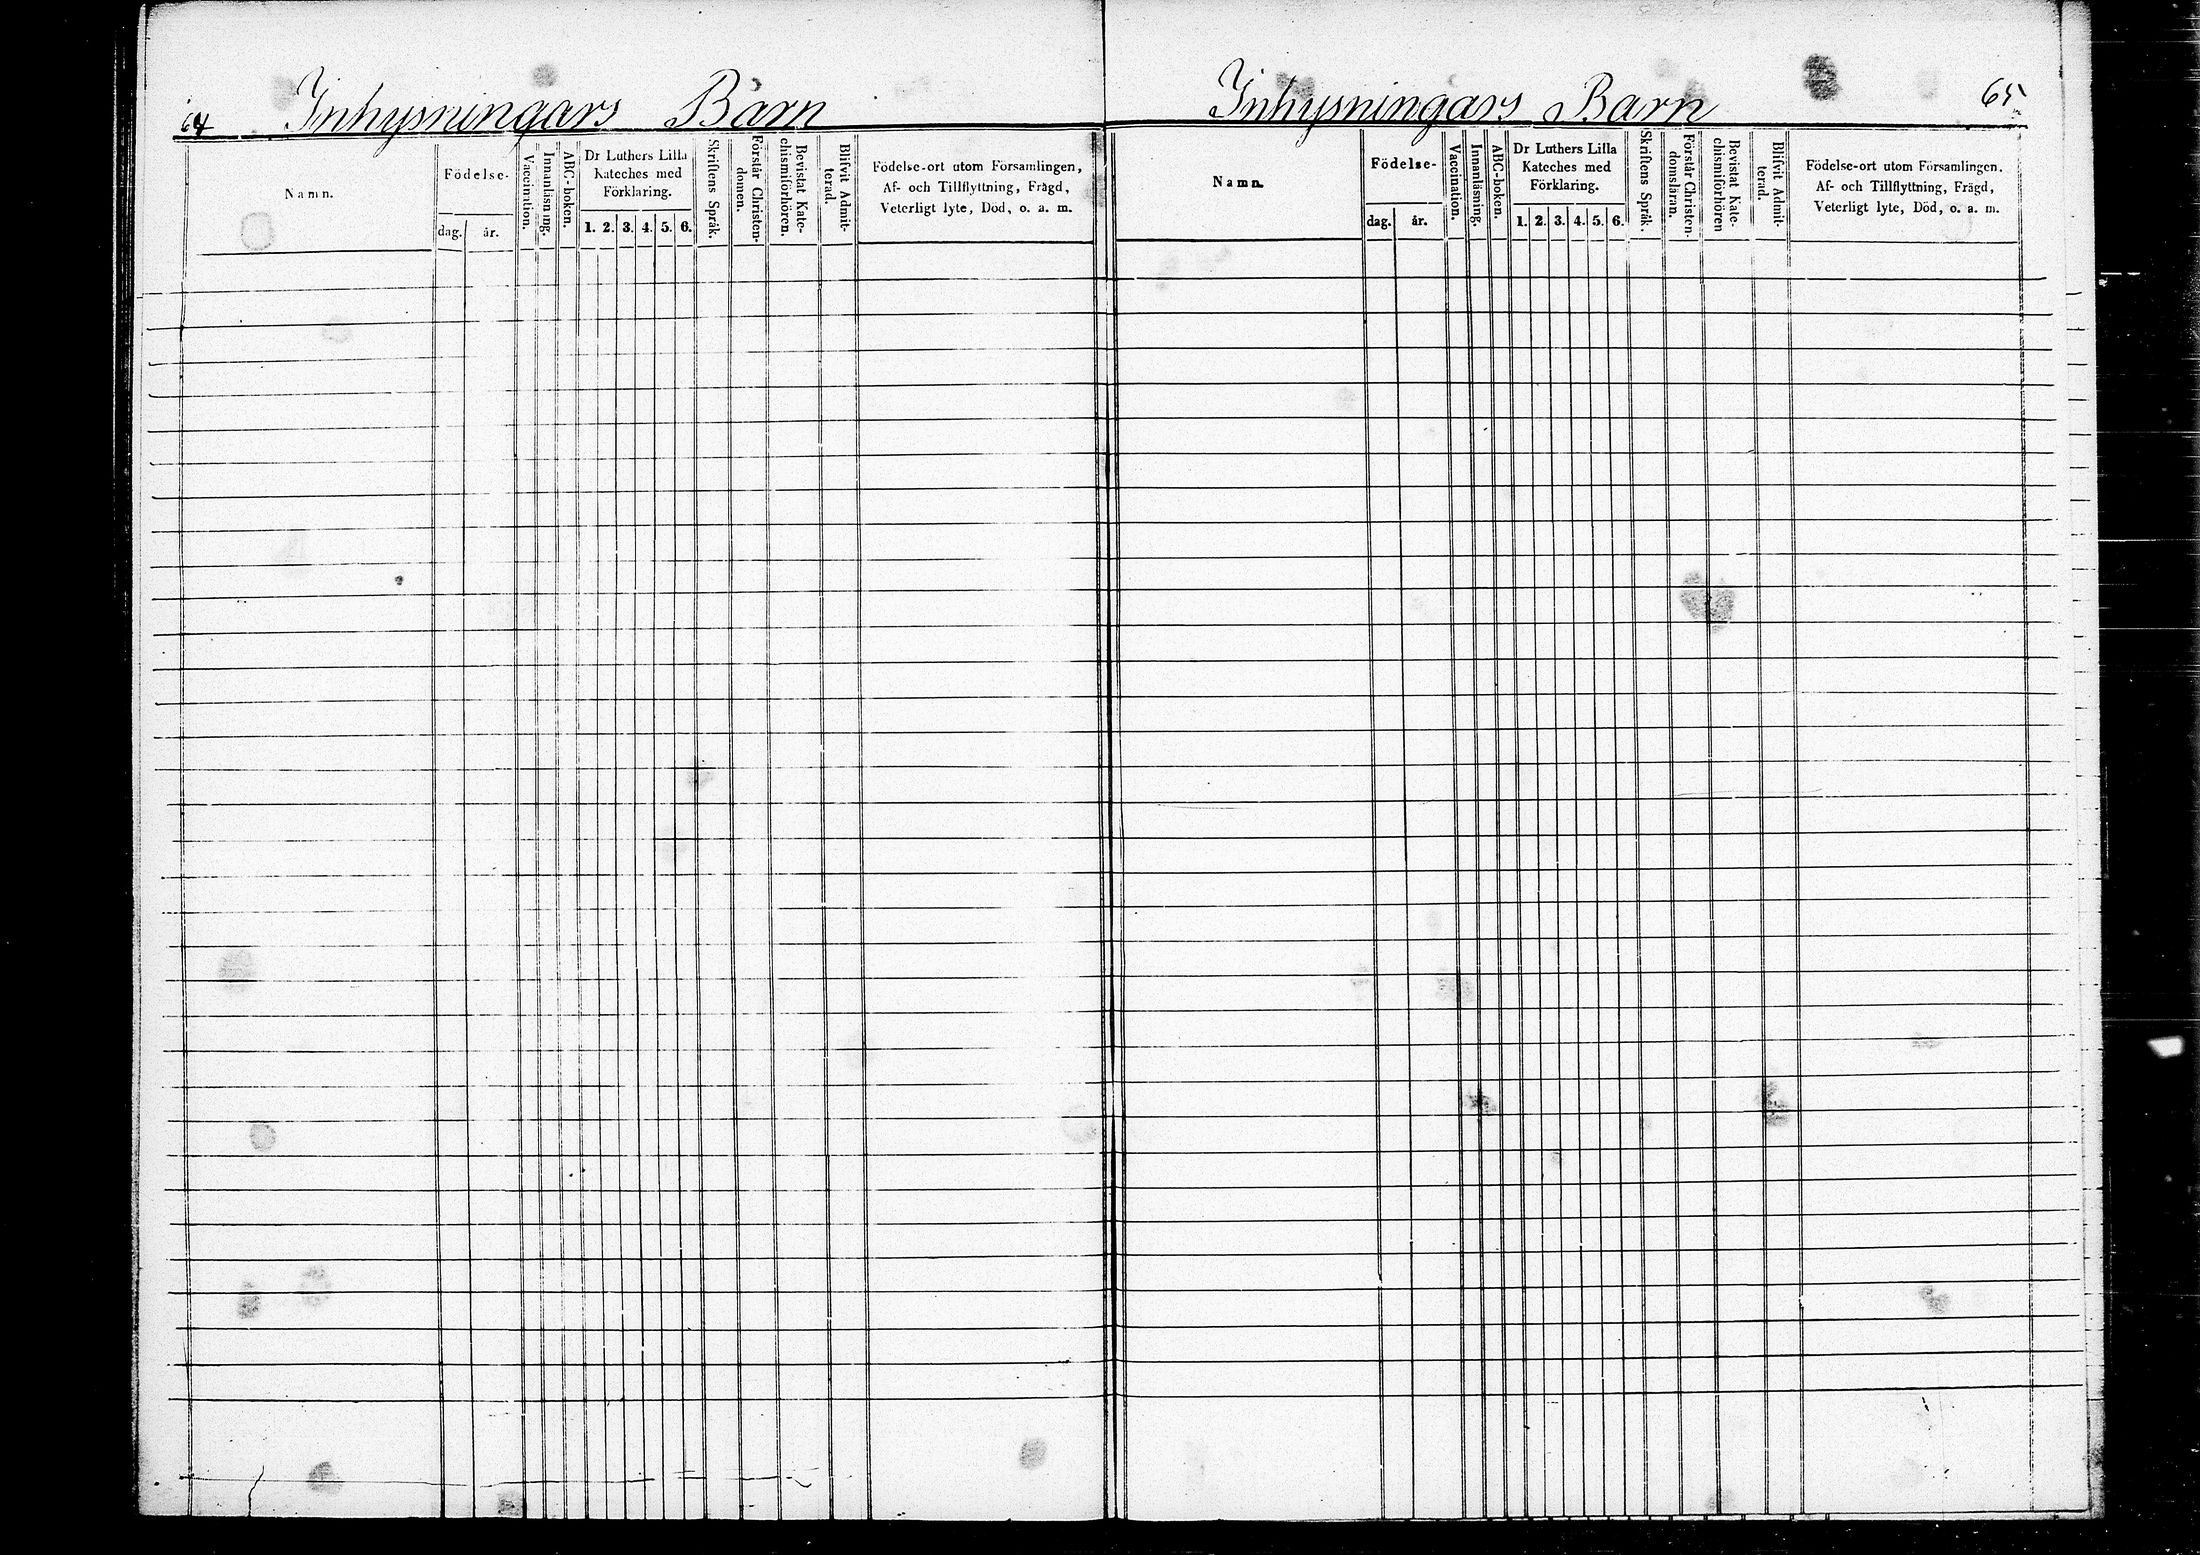 64
Inhysningars Barn
Namn.
Födelse-
dag.
år.
Vaccination.
Innanläsning.
ABC-boken.
Dr Luthers Lilla
Kateches med
Förklaring.
1. 2. 3. 4. 5. 6.
Skriftens Språk.
Förstår Christen-
domen.
Bevistat Kate-
chismiförhören.
Blifvit Admit-
terad.
Födelse-ort utom Församlingen,
Af- och Tillflyttning, Frägd,
Veterligt lyte, Död, o. a. m.
Inhysningars Barn
65
Namn.
Födelse-
dag.
år.
Vaccination.
Innanläsning.
ABC-boken.
Dr Luthers Lilla
Kateches med
Förklaring.
1. 2. 3. 4. 5. 6.
Skriftens Språk.
Förstår Christen-
domsläran.
Bevistat Kate-
chismiförhören
Blifvit Admit-
terad.
Födelse-ort utom Församlingen.
Af- och Tillflyttning, Frägd,
Veterligt lyte, Död, o. a. m.